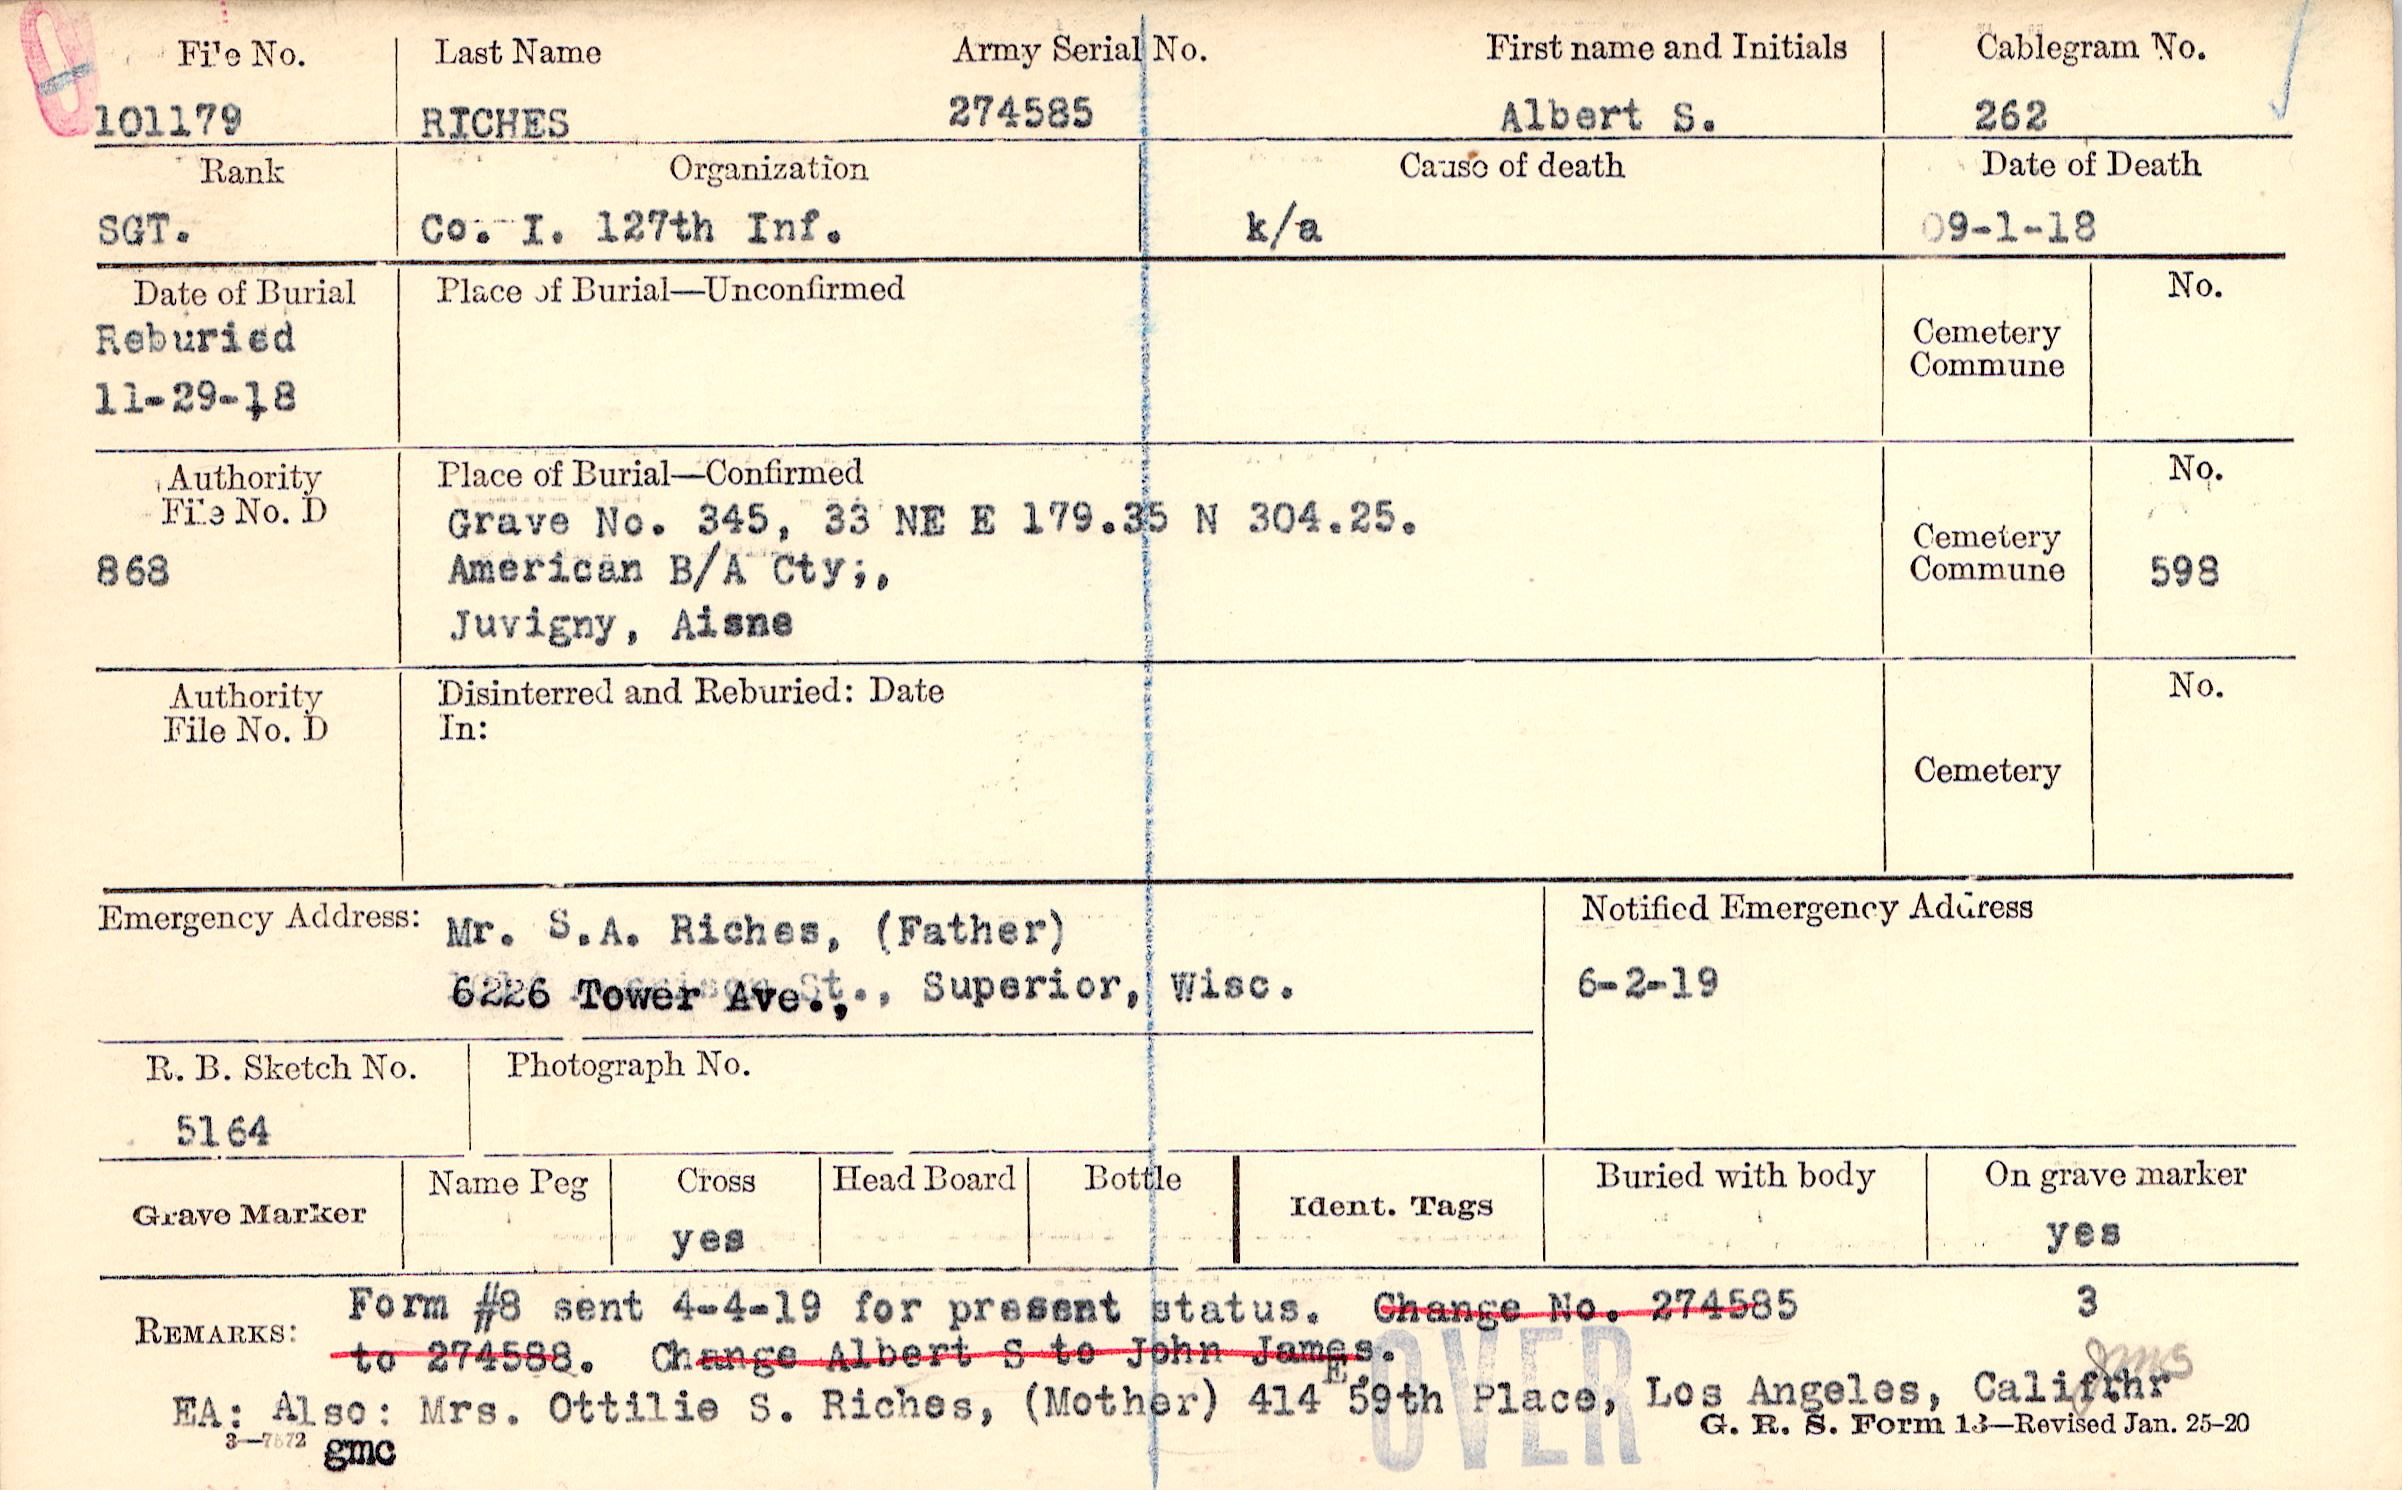 File No. Last Name Army Serial No. First name and Initials Cablegram No.
101179 RICHES 274585 Albert S. 262
Rank Organization Cause of death Date of Death
SGT. Co. I. 127th Inf. k/a 09-1-18
Date of Burial Place of Burial—Unconfirmed No.
Reburied
11-29-18
Cemetery
Commune
Authority Place of Burial—Confirmed No.
File No. D
868
Grave No. 345, 33 NE E 179.35 N 304.25.
American B/A Cty;,
Juvigny, Aisne
Cemetery
Commune 598
Authority Disinterred and Reburied: Date No.
File No. D In:
Cemetery
Emergency Address: Mr. S.A. Riches, (Father)
6226 Tower Ave., St., Superior, Wisc.
Notified Emergency Address
6-2-19
R. B. Sketch No. Photograph No.
5164
Grave Marker Name Peg Cross Head Board Bottle Ident. Tags Buried with body On grave marker
yes yes
REMARKS: Form #8 sent 4-4-19 for present status. Change No. 274585 3
to 274588. Change Albert S to John James.
EA: Also: Mrs. Ottilie S. Riches, (Mother) 414 E. 59th Place, Los Angeles, Califrhr
3—7572 gmc
OVER
G. R. S. Form 13—Revised Jan. 25-20